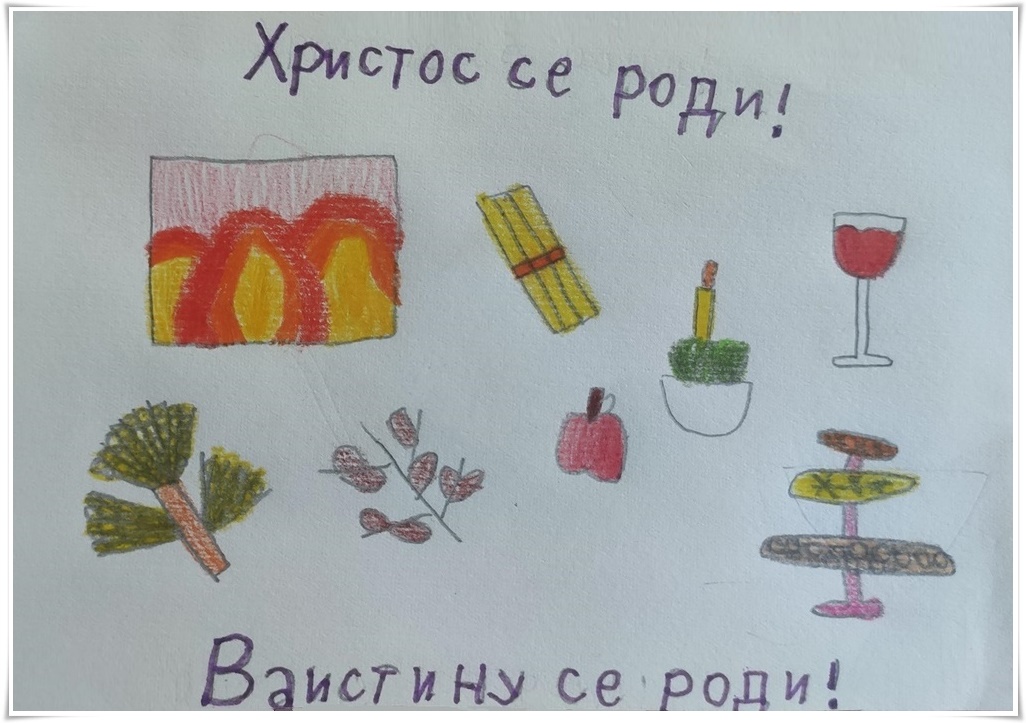 Христос се роди!
Ваистину се роди!